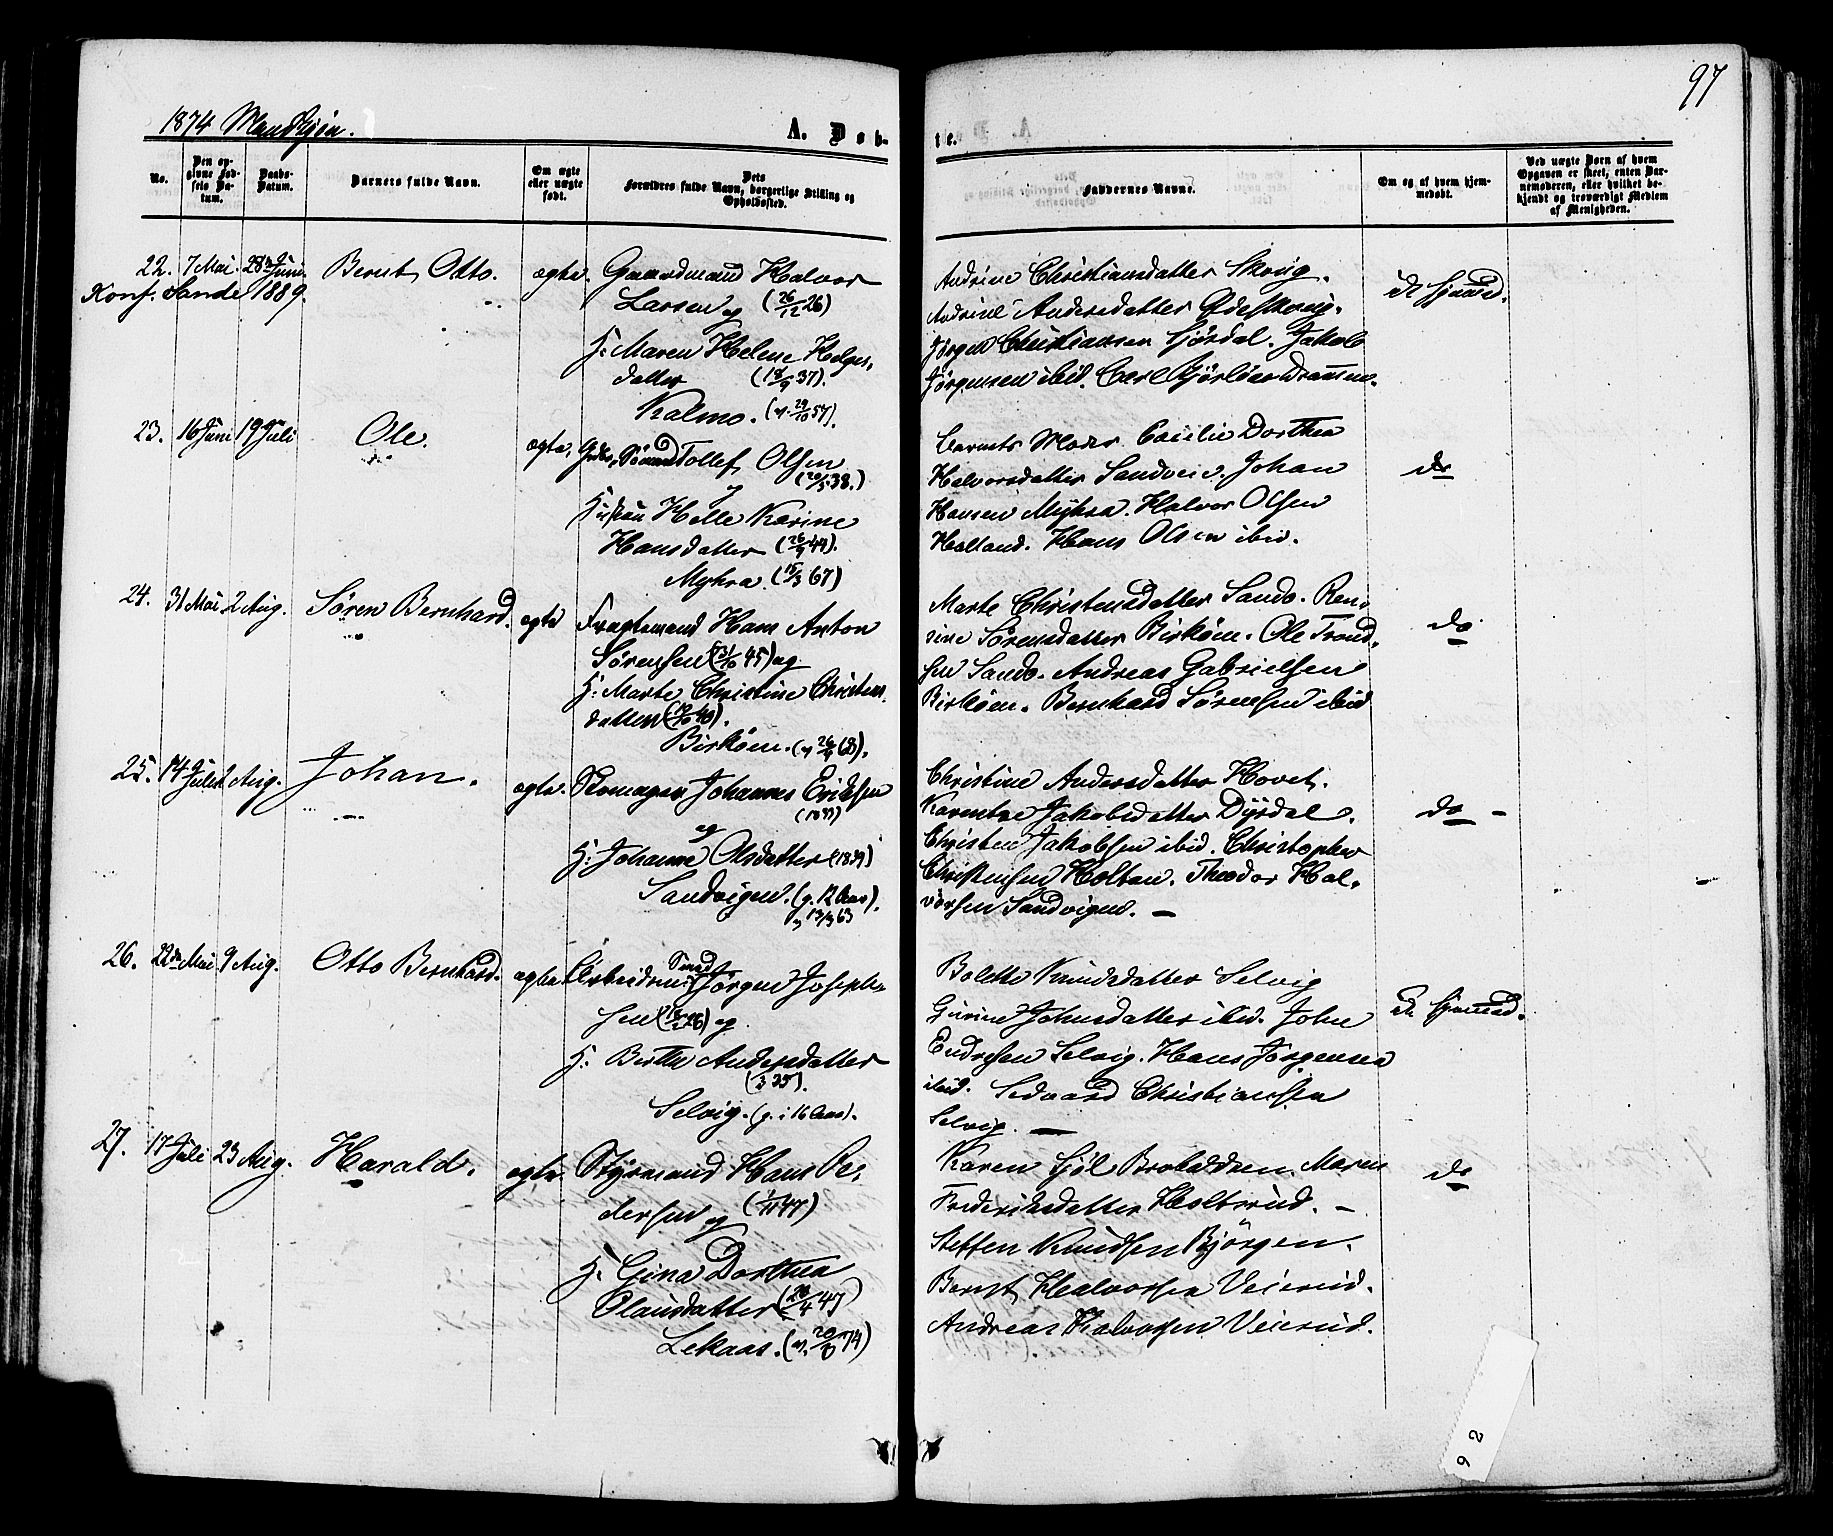 97
1874 Mandkjøn.
A. Døb-
te.
No.
Den opgivne Fødsels Datum.
Daabs-Datum.
Barnets fulde Navn.
Om ægte eller uægte født.
Dets Forældres fulde Navn, borgerlige Stilling og Opholdssted.
Faddernes Navne.
Om og af hvem hjemmedøbt.
Ved uægte Børn af hvem Opgaven er skeet, enten Barnemoderen, eller hvilket bekjendt og troværdigt Medlem af Menigheden.
22. 7 Mai 28de Juni Bernt Otto. ægte. Gaardmand Halvor
Konf. Sande 1889.
Larsen og (26/12 26)
H: Maren Helene Helges-
datter (18/9 37).
Kalmo. (v. 29/10 57).
Andrine Christiansdatter Skoug.
Andrine Andersdatter Ødeskoug.
Jørgen Christiansen Fjørdal. Jakob
Jørgensen ibid. Carl Drammen.
ei hjemmed.
23. 16 Juni 19 Juli Ole. ægte. Tollef Olsen
(20/5 38.)
og
Hustru Helle Karine
Hansdatter (26/9 44).
Myhra. (15/3 67)
Barnets Moder. Cecilie Dorthea
Halvorsdatter Sandveie. Johan
Hansen Myhra. Halvor Olsen
Holtand. Hans Olsen ibid.
do
24. 31 Mai 2 Aug. Søren Bernhard. ægte Fragtemand Hans Anton
Sørensen (31/10 45) og
H: Marte Christine Christens-
datter (19/10 40).
Birköen. (v 26/9 68).
Marte Christensdatter Sando. Ren-
sine Sørensdatter Birköen. Ole Trond-
sen Sando. Andreas Gabrielsen
Birköen. Bernhard Sørensen ibid
do
25. 14 Juli 2 Aug. Johan. ægte. Skomager Johannes Eriksen
og
H: Johanne Olsdatter (1839)
Sandvigen. (g. 12 Aar).
v 13/3 63
Christine Andersdatter Hovet.
Karentse Jakobsdatter Dyrdal.
Christen Jakobsen ibid. Christopher
Christensen Holtan. Theodor Hal-
vorsen Sandvigen. —
do -
26. 22de Mai 9 Aug. Otto Bernhard. ægte Arbeidsmd Jørgen Joseph-
sen og
H: Berthe Andersdatter
Selvig. (g. i 16 Aar).
Bolette Knudsdatter Selvig
Gurine Johnsdatter ibid. John
Endresen Selvig. Hans Jørgensen
ibid. Edvard Christiansen
Selvig. —
ei hjemmed.
27. 17 Juli 23 Aug. Harald. ægte Styrmand Hans Pe-
dersen og (1/11 47)
H: Gina Dorthea
Olausdatter (20/4 47)
Lekaas. 74)
Karen Fjøl Maren
Frederiksdatter Holtsrud. —
Steffen Knudsen Bjørgen.
Bernt Halvorsen Veierud.
Andreas Halvorsen Veierud.
do
92